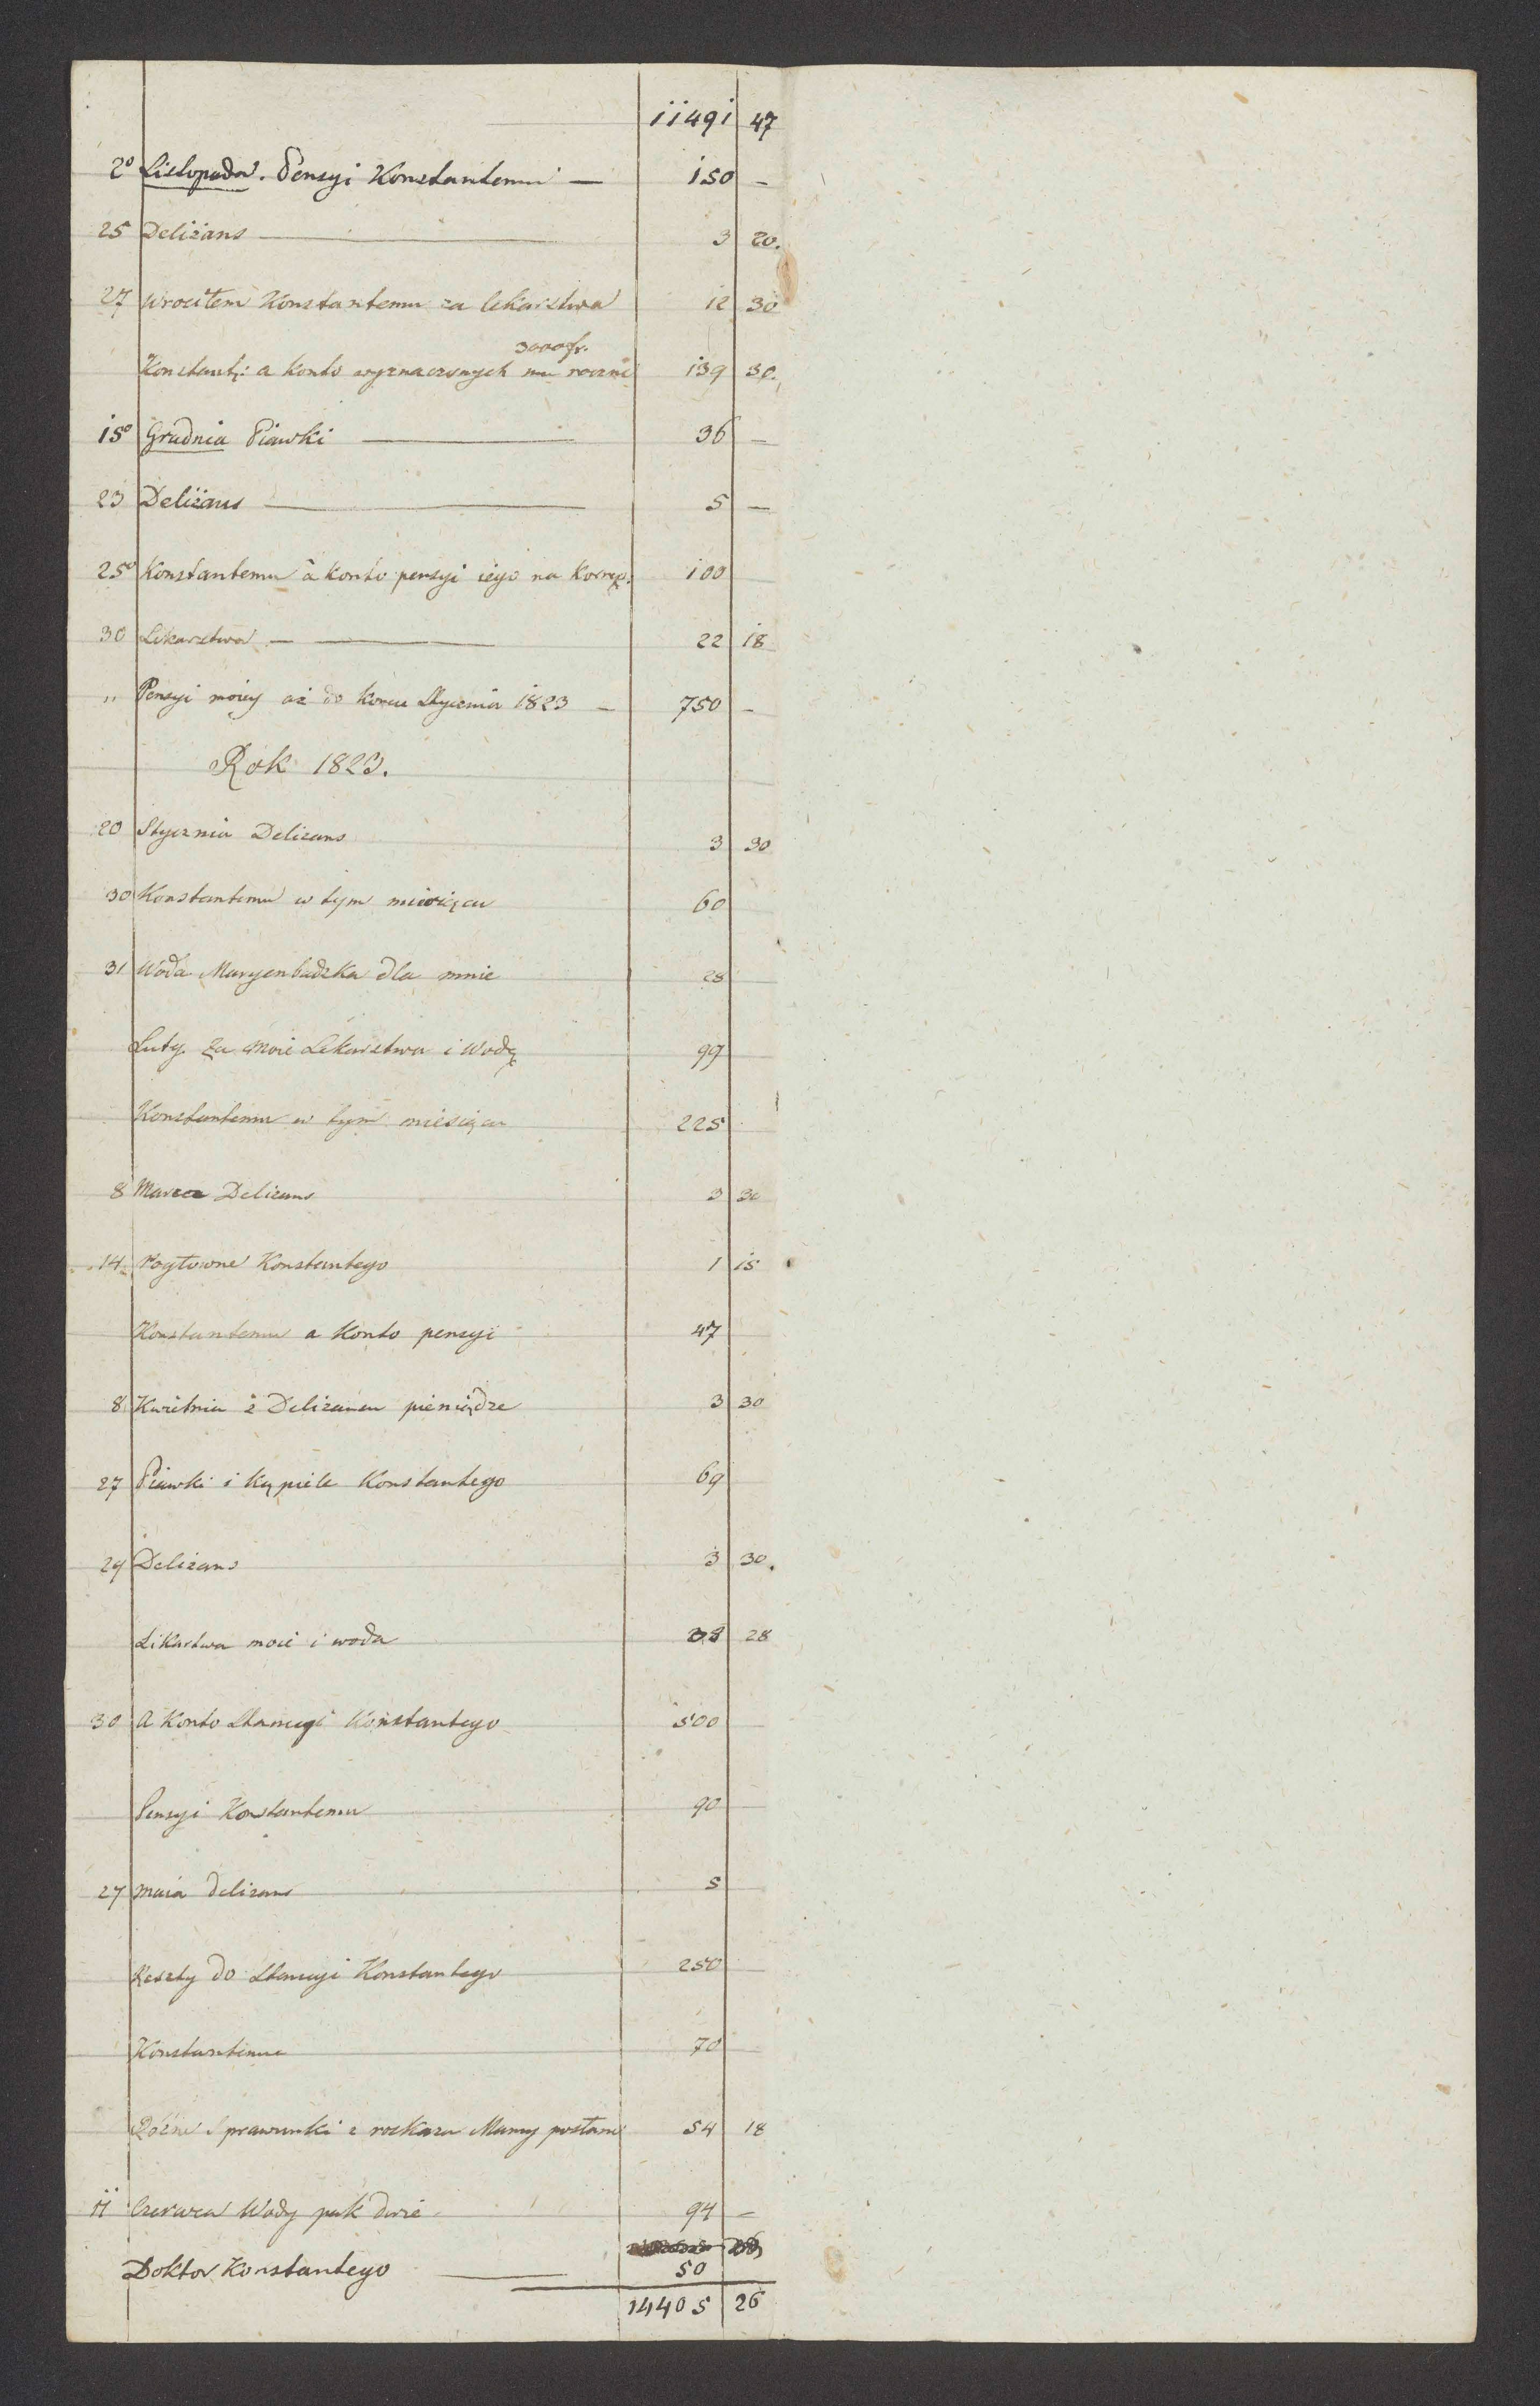 11491 47
2° Listopada. Pensyi Konstantemu — 150 —
25 Deliżans — 3 20.
27 Wrociłem Konstantemu za lekarstwa 12 30
3000 fr.
Konstant: a konto wyznaczonych mu rocznie 139 30.
15° Grudnia Piawki — 36 —
23 Deliżans — 5 —
25° Konstantemu à konto pensyi iego na Korrep. 100
30 Lekarstwa — 22 18
" Pensyi moiey aż do końca Stycznia 1823 — 750 —
Rok 1823.
20 Stycznia Delizans 3 30
30 Konstantemu w tym miesiącu 60
31 Woda Maryenbadzka dla mnie 28
Luty. Za moie Lekarstwa i Wodę 99
Konstantemu w tym miesiącu 225
8 Marca Delizans 3 30
14 Pogłowne Konstantego 1 15
Konstantemu a Konto pensyi 47
8 Kwietnia z Delizansu pieniądze 3 30
27 Piawki i Kąpiele Konstantego 69
29 Delizans 3 30.
Likarstwa moie i woda 38 28
30 A Konto Stancyi Konstantego 500
Pensyi Konstantemu 90
27 maia delizans 5
Reszty do Stancyi Konstantego 250
Konstantemu 70
Różne Sprawunki z rozkazu Mamy posłane 54 18
11 Czerwca Wody pak dwie 94 —
Doktor Konstantego — 50
14405 26